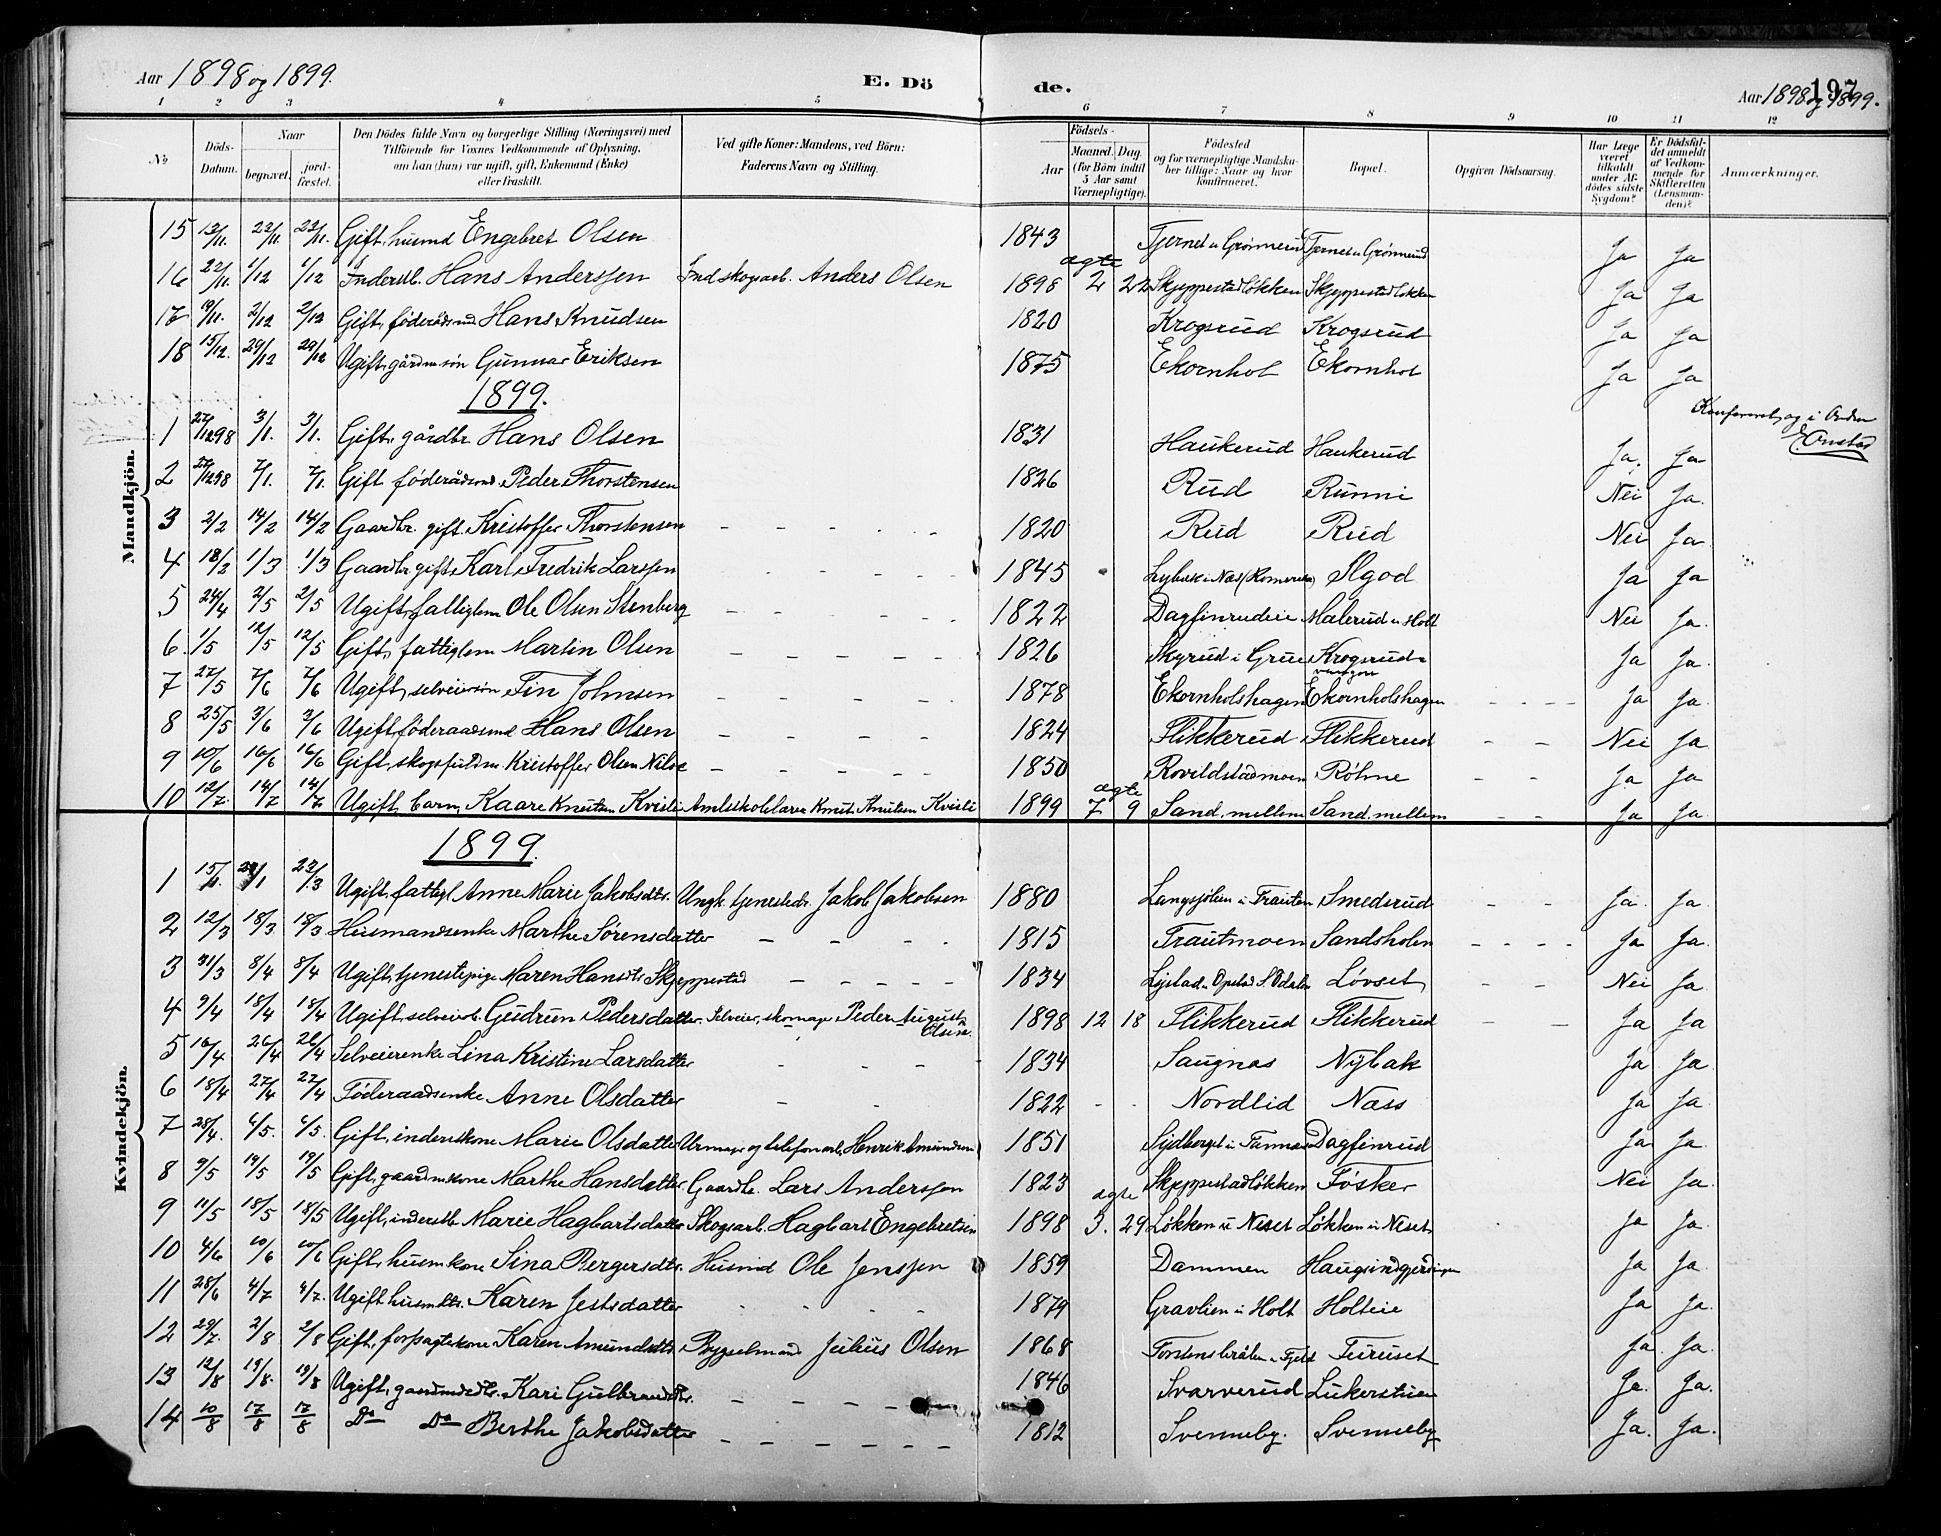 Aar 1898 og 1899.
E. Dö
de.
197
Aar 1898 og 1899.
1 2 3 4 5 6 7 8 9 10 11 12
No
Döds-Datum.
Naar
begravet.
jord-fæstet.
Den Dödes fulde Navn og borgerlige Stilling (Næringsvei) med
Tilföiende for Voxnes Vedkommende af Oplysning,
om han (hun) var ugift, gift, Enkemand (Enke)
eller fraskilt.
Ved gifte Koner: Mandens, ved Börn:
Faderens Navn og Stilling.
Födsels-
Aar
Maaned.
Dag.
(for Börn indtil
5 Aar samt
Værnepligtige).
Födested
og for værnepligtige Mandska-
ber tillige: Naar og hvor
konfirmeret.
Bopæl.
Opgiven Dödsaarsag.
Har Læge
været
tilkaldt
under Af-
dödes sidste
Sygdom?
Er Dödsfal-
det anmeldt
af Vedkom-
mende for
Skifteretten
(Lensman-
den)?
Anmærkninger.
Mandkjön.
15 12/11. 22/11. 22/11. Gift, husmd Engebret Olsen 1843 Tjernet u Grønnerud Tjernet u Grønnerud Ja Ja
16 22/11 1/12 1/12 Inderstb. Hans Anderssen Ind skogsarb. Anders Olsen 1898 ægte 2 22 Skjeppestadløkken Skjeppestadløkken Ja Ja
17 19/11. 2/12 2/12 Gift, føderådsmd Hans Knudsen 1820 Krogsrud Krogsrud Ja Ja
18 15/12. 29/12 29/12 Ugift, gårdm. søn Gunnar Eriksen 1875 Ekornhol Ekornhol Ja Ja
1899.
1 27/12 98 3/1. 3/1. Gift, gårdbr. Hans Olsen 1831 Haukerud Haukerud Ja. Ja
Konfereret og i Orden
Onstad
2 27/12 98 7/1. 7/1. Gift føderådsmd. Peder Thorstensen 1826 Rud Runni Nei Ja.
3 2/2 14/2 14/2 Gaardbr. gift. Kristoffer Thorstensen 1820 Rud Rud Nei Ja
4 18/2 1/3 1/3 Gaardbr gift, Karl Fredrik Larssen 1845 i Næs (Romerike) Ja Ja
5 24/4 2/5 2/5 Ugift, fattiglem Ole Olsen Stenberg 1822 Dagfinrudeie Malerud u Holt Nei Ja.
6. 1/5 12/5 12/5 Gift, fattiglem Martin Olsen 1826 Skyrud i Grue Krogsrud Ja Ja.
7 27/5 7/6 7/6 Ugift, selveiersøn Fin Johnsen 1878 Ekornholshagen Ekornholshagen Ja Ja.
8 25/5 3/6 3/6 Ugift føderaadsmd Hans Olsen 1824 Slikkerud Slikkerud Nei Ja
9 10/6 16/6 16/6 Gift, skogsfuldm. Kristoffer Olsen 1850 Rovildstadmoen Røhne Ja Ja
10 12/7. 14/7 14/7 Ugift, barn, Kaare Knutsen Kvisli Amtsskolelærer Knut Knutsen Kvisli 1899 ægte 7 9 Sand, mellem Sand, mellem Ja Ja.
Kvindekjön.
1899.
1 22/3 Ugift, fattigl Anne Marie Jakobsdtr. Ungk. tjenestedr. Jakob Jakobsen 1880 Langsjølien u Trauten Smederud Ja. Ja.
2 12/3 18/3 18/3 Husmandsenke Marthe Sørensdatter 1815 Trautmoen Sandsholen Ja Ja.
3 31/3 8/4 8/4 Ugift, tjenestepige Maren Hansdtr. Skjeppestad 1834 S. Odalen Løvset Nei Ja.
4 9/4 18/4 18/4 Ugift, selveierb. Gudrun Pedersdatter. Selveier, skomager Peder August Olsen. 1898 12 18 Slikkerud Slikkerud Ja Ja
5 16/4 26/4 26/4 Selveierenke Lina Kristine Larsdatter 1834 Saugnæs Nybak Ja Ja
6 18/4 27/4 27/4 Føderaadsenke Anne Olsdatter 1822 Nordlid Næss Ja Ja.
7 28/4. 6/5. 6/5. Gift, inderstkone Marie Olsdatter Urmager og telefonarb. Henrik Amundsen 1851 Dagfinrud Ja Ja
8 9/5 19/5 19/5 Gift, gaardmkone Marthe Hansdatter. Gaardbr. Lars Anderssen 1823 Skjeppestadløkken Fösker Nei Ja.
9 11/5 18/5 18/5 Ugift, inderstb. Marie Hagbartsdatter Skogsarb. Hagbart Engebretsen 1898 ægte 3. 29 Løkken u Neset Løkken u Neset Ja Ja.
10 4/6 10/6 10/6 Gift, husmkone Sina Bergersdtr. Husmd Ole Jenssen 1859 Dammen Ja Ja.
11 28/6 4/7 4/7. Ugift husmdtr. Karen Jestsdatter 1879 Gravlien u Holt Holteie Ja Ja.
12 29/7. 2/8 2/8 Gift, forpagterkone Karen Amundsdtr. Bygselmand Julius Olsen 1868 Furuset Ja. Ja.
13 12/8 19/8. 19/8 Ugift, gaardmdtr. Kari Gulbrandsdtr. 1846 Svarverud Lukerstuen Ja. Ja.
14 10/8 17/8 17/8 Do Do Berthe Jakobsdatter 1812 Svenneby. Svenneby Ja. Ja.